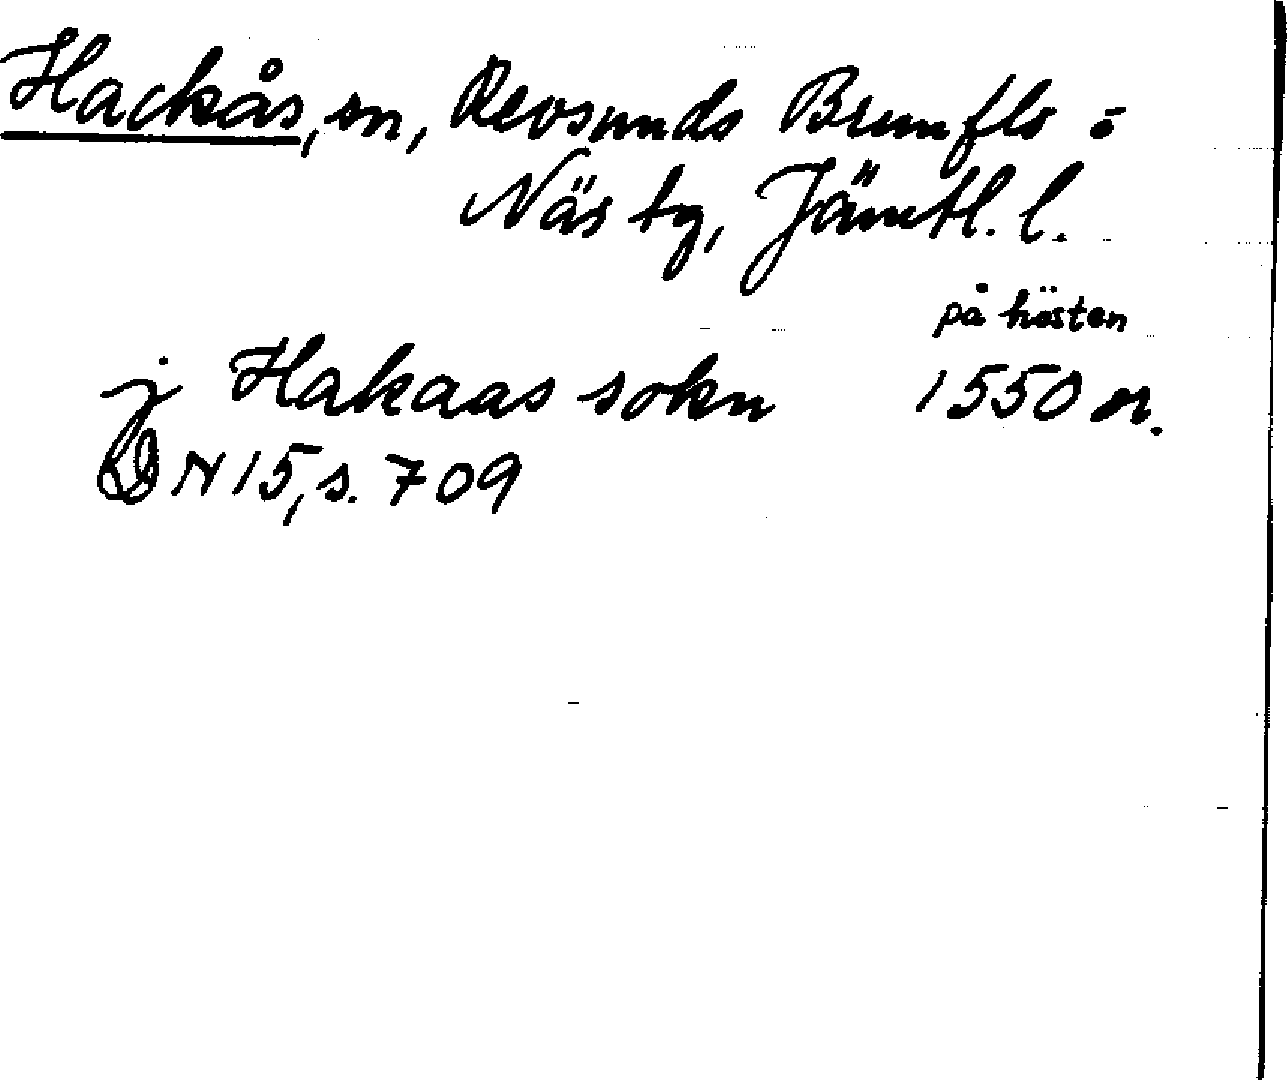 Hackås, sn, Revsunds Brunflo o
Näs tg, Jämtl. l.
på hösten
j Hakaas sokn 1550 or.
DN 15, s. 709